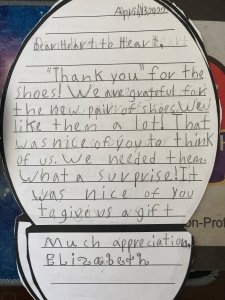 Dear Heart to Heart,
"Thank you" for the
shoes! We are grateful for
the new pair of shoes. We
like them a lot! That
was nice of you to think
of us. We needed them.
What a surprise! It
was nice of you
to give us a gift
Much appreciation,
Elizabeth
on-Prof